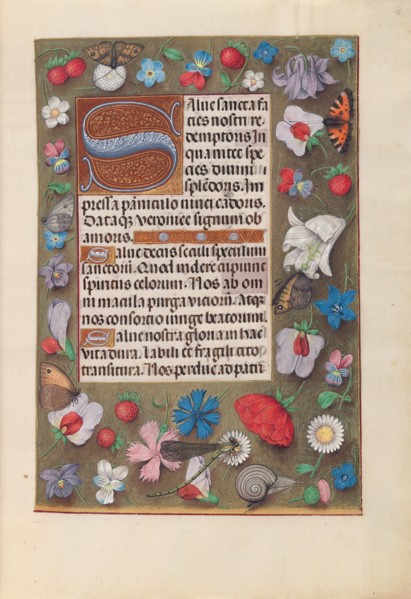 Salue sancta fa
cies nostri re
demptoris In
qua nitet spe
cies diuini
splẽdoris. Im
pressa pãniculo niuei cãdoris.
Dataq̃ veronice signum ob
amoris.
Salue decus seculi speculum
sanctorũ. Quod uidere cupiunt
spiritus celorum. Nos ab om
ni macula purga viciorũ. Atq̃
nos consorcio iunge beatorum.
Salue nostra gloria in hac
vita dura. Labili et fragili cito
transitura. Nos perduc ad patri